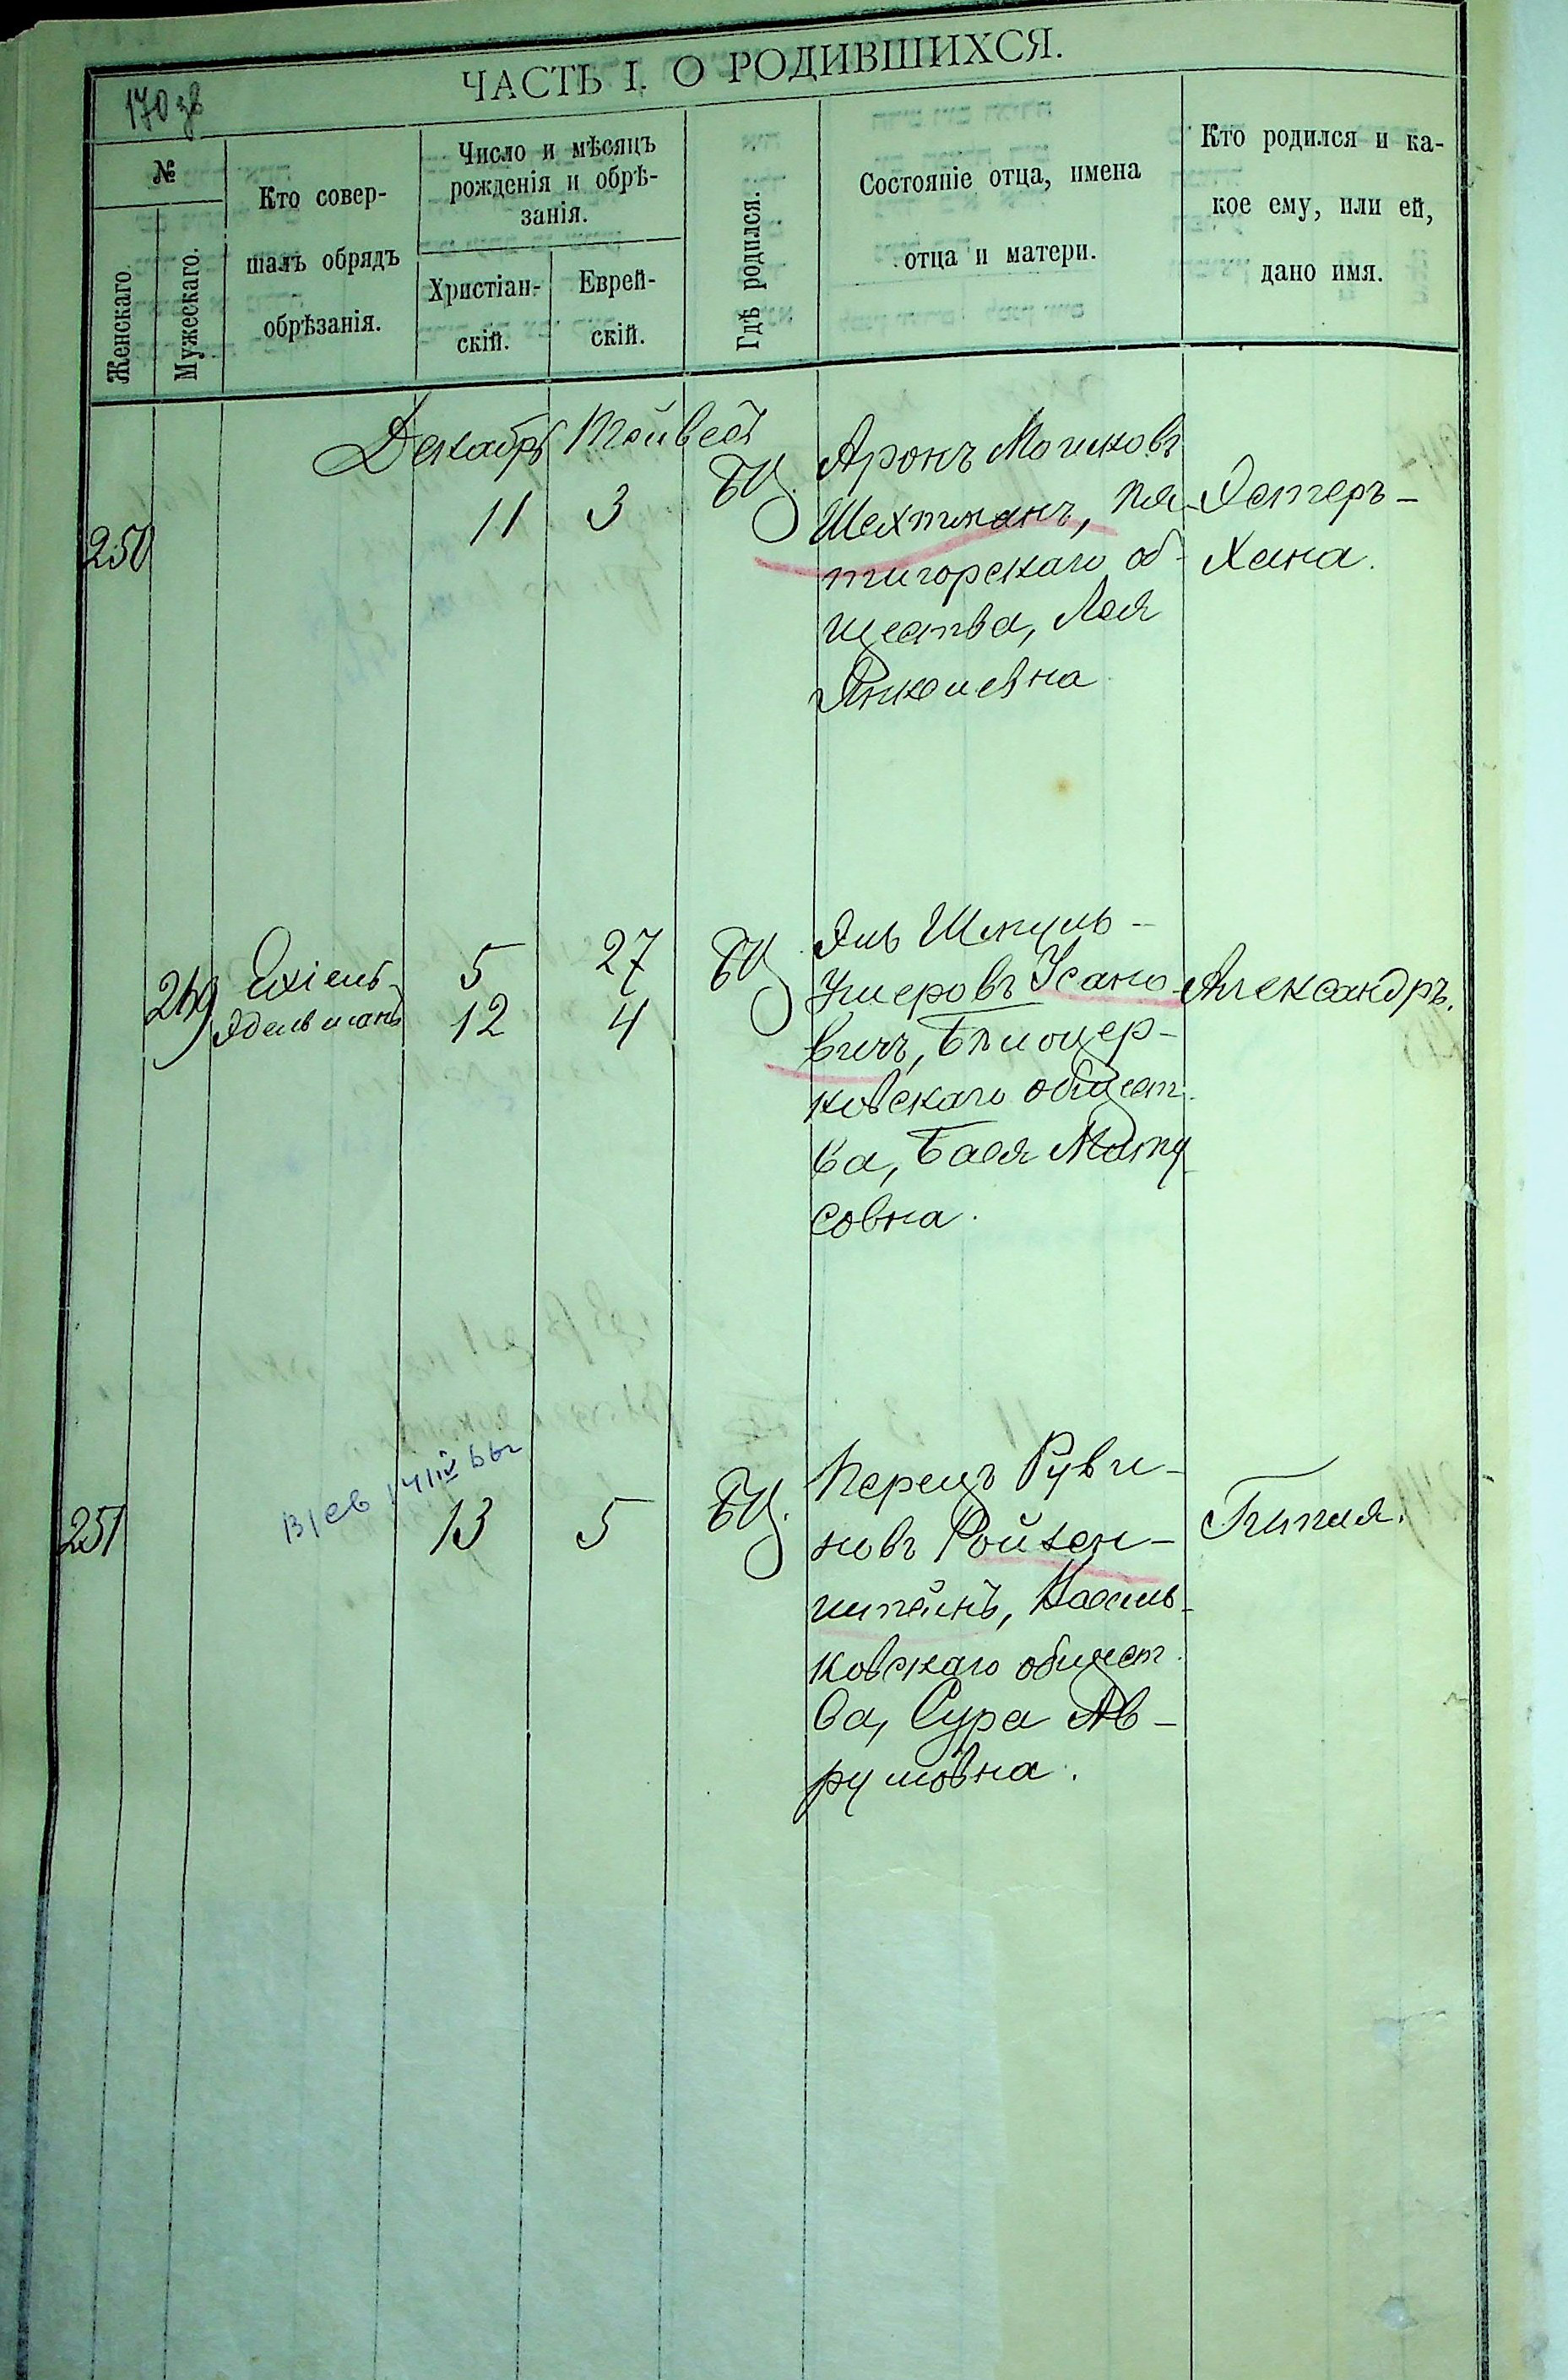 170 зв
ЧАСТЬ I. О РОДИВШИХСЯ.
№
Женскаго.
Мужескаго.
Кто совер-
шалъ обрядъ
обрѣзанія.
Число и мѣсяцъ
рожденія и обрѣ-
занія.
Христіан-
скій.
Еврей-
скій.
Гдѣ родился.
Состояніе отца, имена
отца и матери.
Кто родился и ка-
кое ему, или ей,
дано имя.
Декабрь Тейвесъ
250
11
3
БЦ.
Аронъ Мошковъ
Шехтманъ, Пя-
тигорскаго об-
щества, Лея
Янкелевна
Эстеръ-
Хана.
269
Ехіель
Эдельманъ
5
12
27
4
БЦ
Эль Шмуль-
Ушеровъ Усано-
вичъ, Бѣлоцер-
ковскаго общест-
ва, Бася Мату-
совна.
Александръ.
251
13
5
БЦ.
Перецъ Руви-
новъ Ройзен-
штейнъ, Василь-
ковскаго общест-
ва, Сура Ав-
румовна.
Гитля.